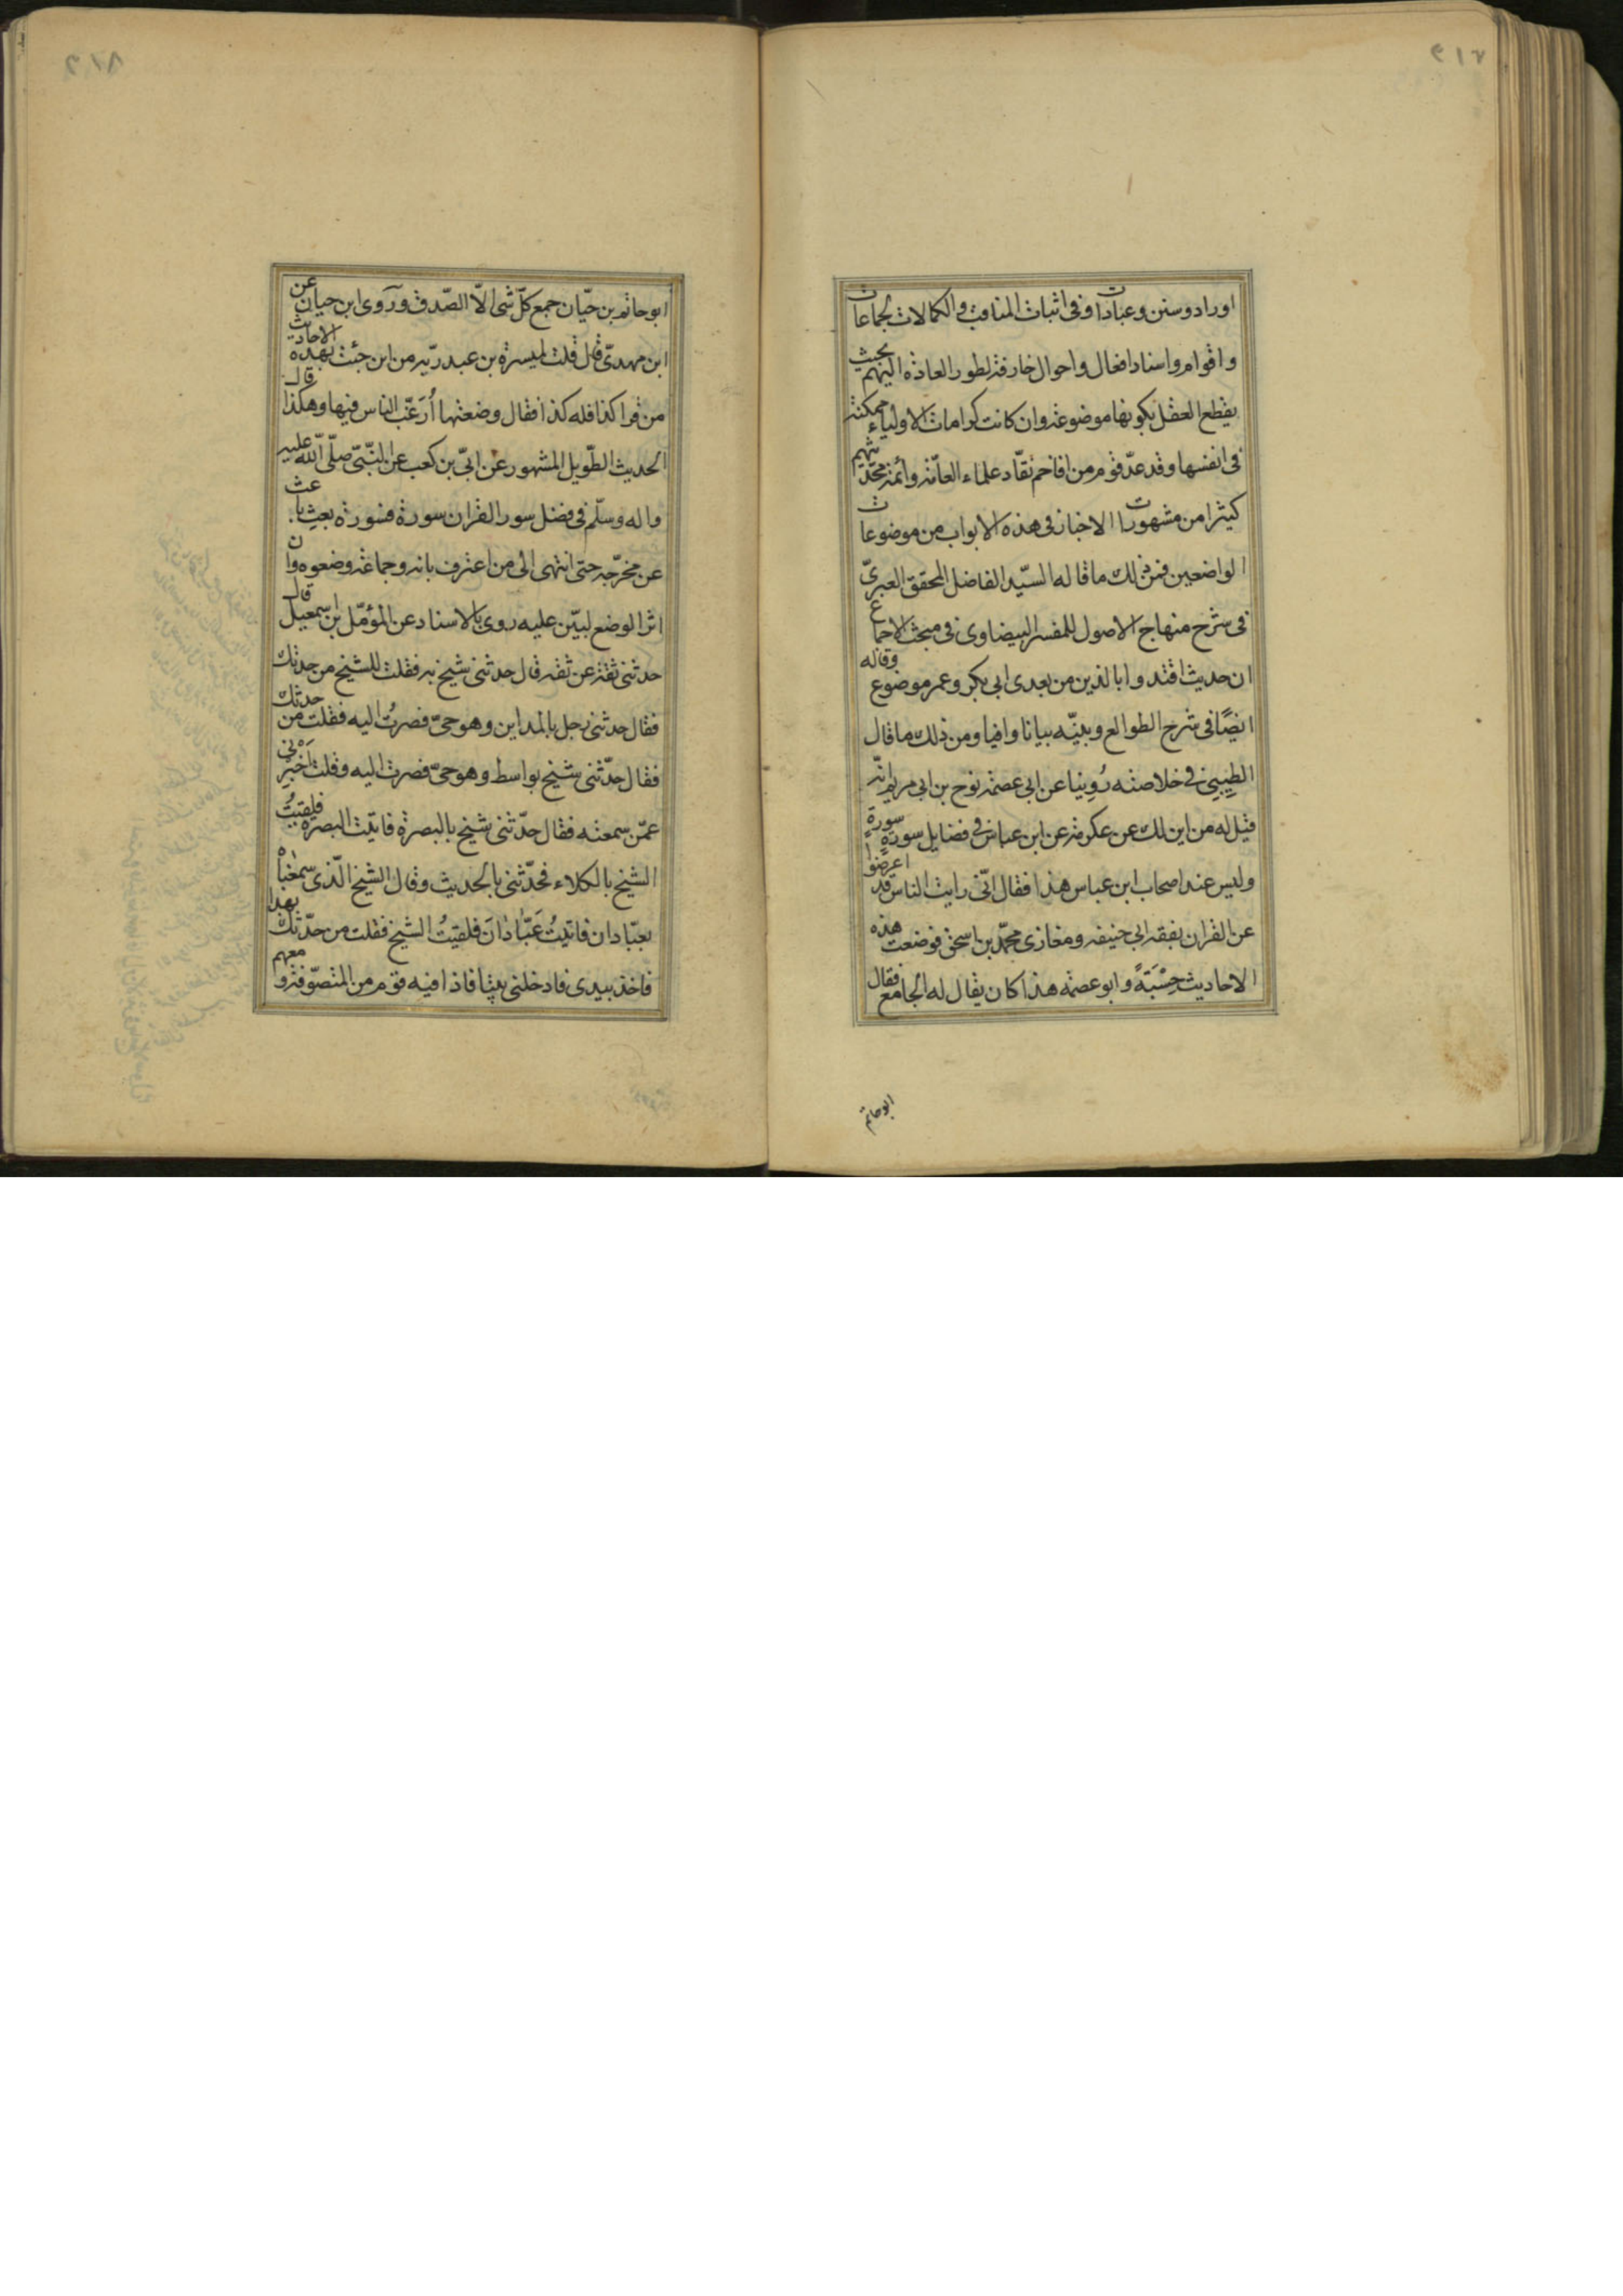 اوراد وسنن وعبادات وفى اثبات المناقب والكمالات لجماعات
واقوام واسناد افعال واحوال خارقة لطور العادة اليهم بحيث
يقطع العقل بكونها موضوعة وان كانت كرامات الاولياء ممكنة
فى انفسها وقد عدّ قوم من افاخم نقّاد علماء العامّة وأئمة محدّثيهم
كثيرا من مشهورات الاخبار فى هذه الابواب من موضوعات
الواضعين فمن ذلك ما قاله السيّد الفاضل المحقق العبرىّ
فى شرح منهاج الاصول للمفسر البيضاوى فى مبحث الاجماع
ان حديث اقتدوا بالذين من بعدى ابى بكر وعمر موضوع وقاله
ايضًا فى شرح الطوالع وبيّنه بيانا وافيا ومن ذلك ما قال
الطيبى فى خلاصته رُوِينا عن ابى عصمة نوح بن ابى مريم انّه
قيل له من اين لك عن عكرمة عن ابن عباس فى فضايل سورة سورة
وليس عند اصحاب ابن عباس هذا فقال انّى رايت الناس قد اعرضوا
عن القران بفقه ابى حنيفه ومغازى محمّد بن اسحق فوضعت هذه
الاحاديث حِسْبَةً وابو عصمة هذا كان يقال له الجامع فقال
ابو حاتم
ابو حاتم بن حيّان جمع كلّ شى الّا الصّدق وروى ابن حيان عن
ابن مهدىّ قال قلت لميسرة بن عبد ربّه من اين جئت بهذه الاحاديث
من قرا كذا فله كذا فقال وضعتها أُرَغّب الناس فيها وهكذا قال
الحديث الطّويل المشهور عن ابىّ بن كعب عن النّبىّ صلّى اللّه عليه
واله وسلّم فى فضل سور القران سورة فسورة بعث باعث
عن مخرّجه حتى انتهى الى من اعترف بانه وجماعة وضعوه وان
اثر الوضع لبيّن عليه روى بالاسناد عن المؤمّل بن اسمعيل قال
حدثنى ثقة عن ثقة قال حدثنى شيخ به فقلت للشيخ من حدثك
فقال حدثنى رجل بالمداين وهو حىّ فصرتُ اليه فقلت من حدثك
فقال حدّثنى شيخ بواسط وهو حىّ فصرت اليه وقلت اَخْبِرْنى
عمّن سمعته فقال حدّثنى شيخ بالبصرة فاتيت البصره فلقيتُ
الشيخ بالكلاء فحدّثنى بالحديث وقال الشيخ الّذى سمعناه
بعبّادان فاتيتُ عَبّادانَ فلقيتُ الشيخ فقلت من حدّثك بهذا
فاخذ بيدى فادخلنى بيتا فاذا فيه قوم من المتصوّفة و معهم